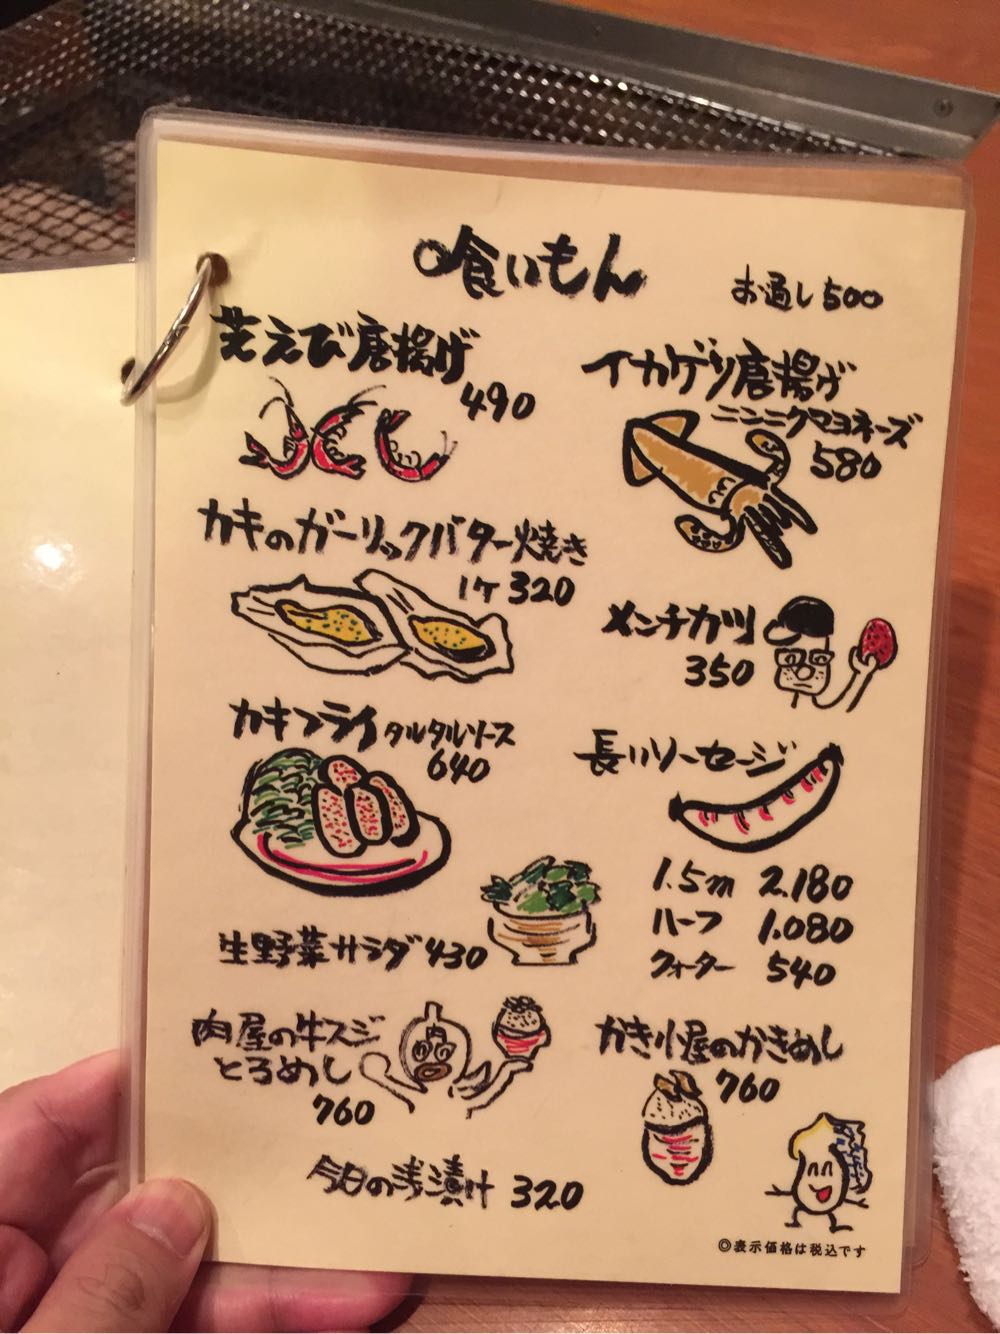 喰いもん
お通し500
芝えび唐揚げ
490
イカゲソ唐揚げ
ニンニクマヨネーズ
580
カキのガーリックバター焼き
1ケ320
メンチカツ
350
カキフライタルタルソース
640
長いソーセージ
1.5m 2.180
ハーフ 1.080
クォーター 540
生野菜サラダ430
肉屋の牛スジ
とろめし
760
肉
かき小屋のかきめし
760
今日の浅漬け 320
◎表示価格は税込です